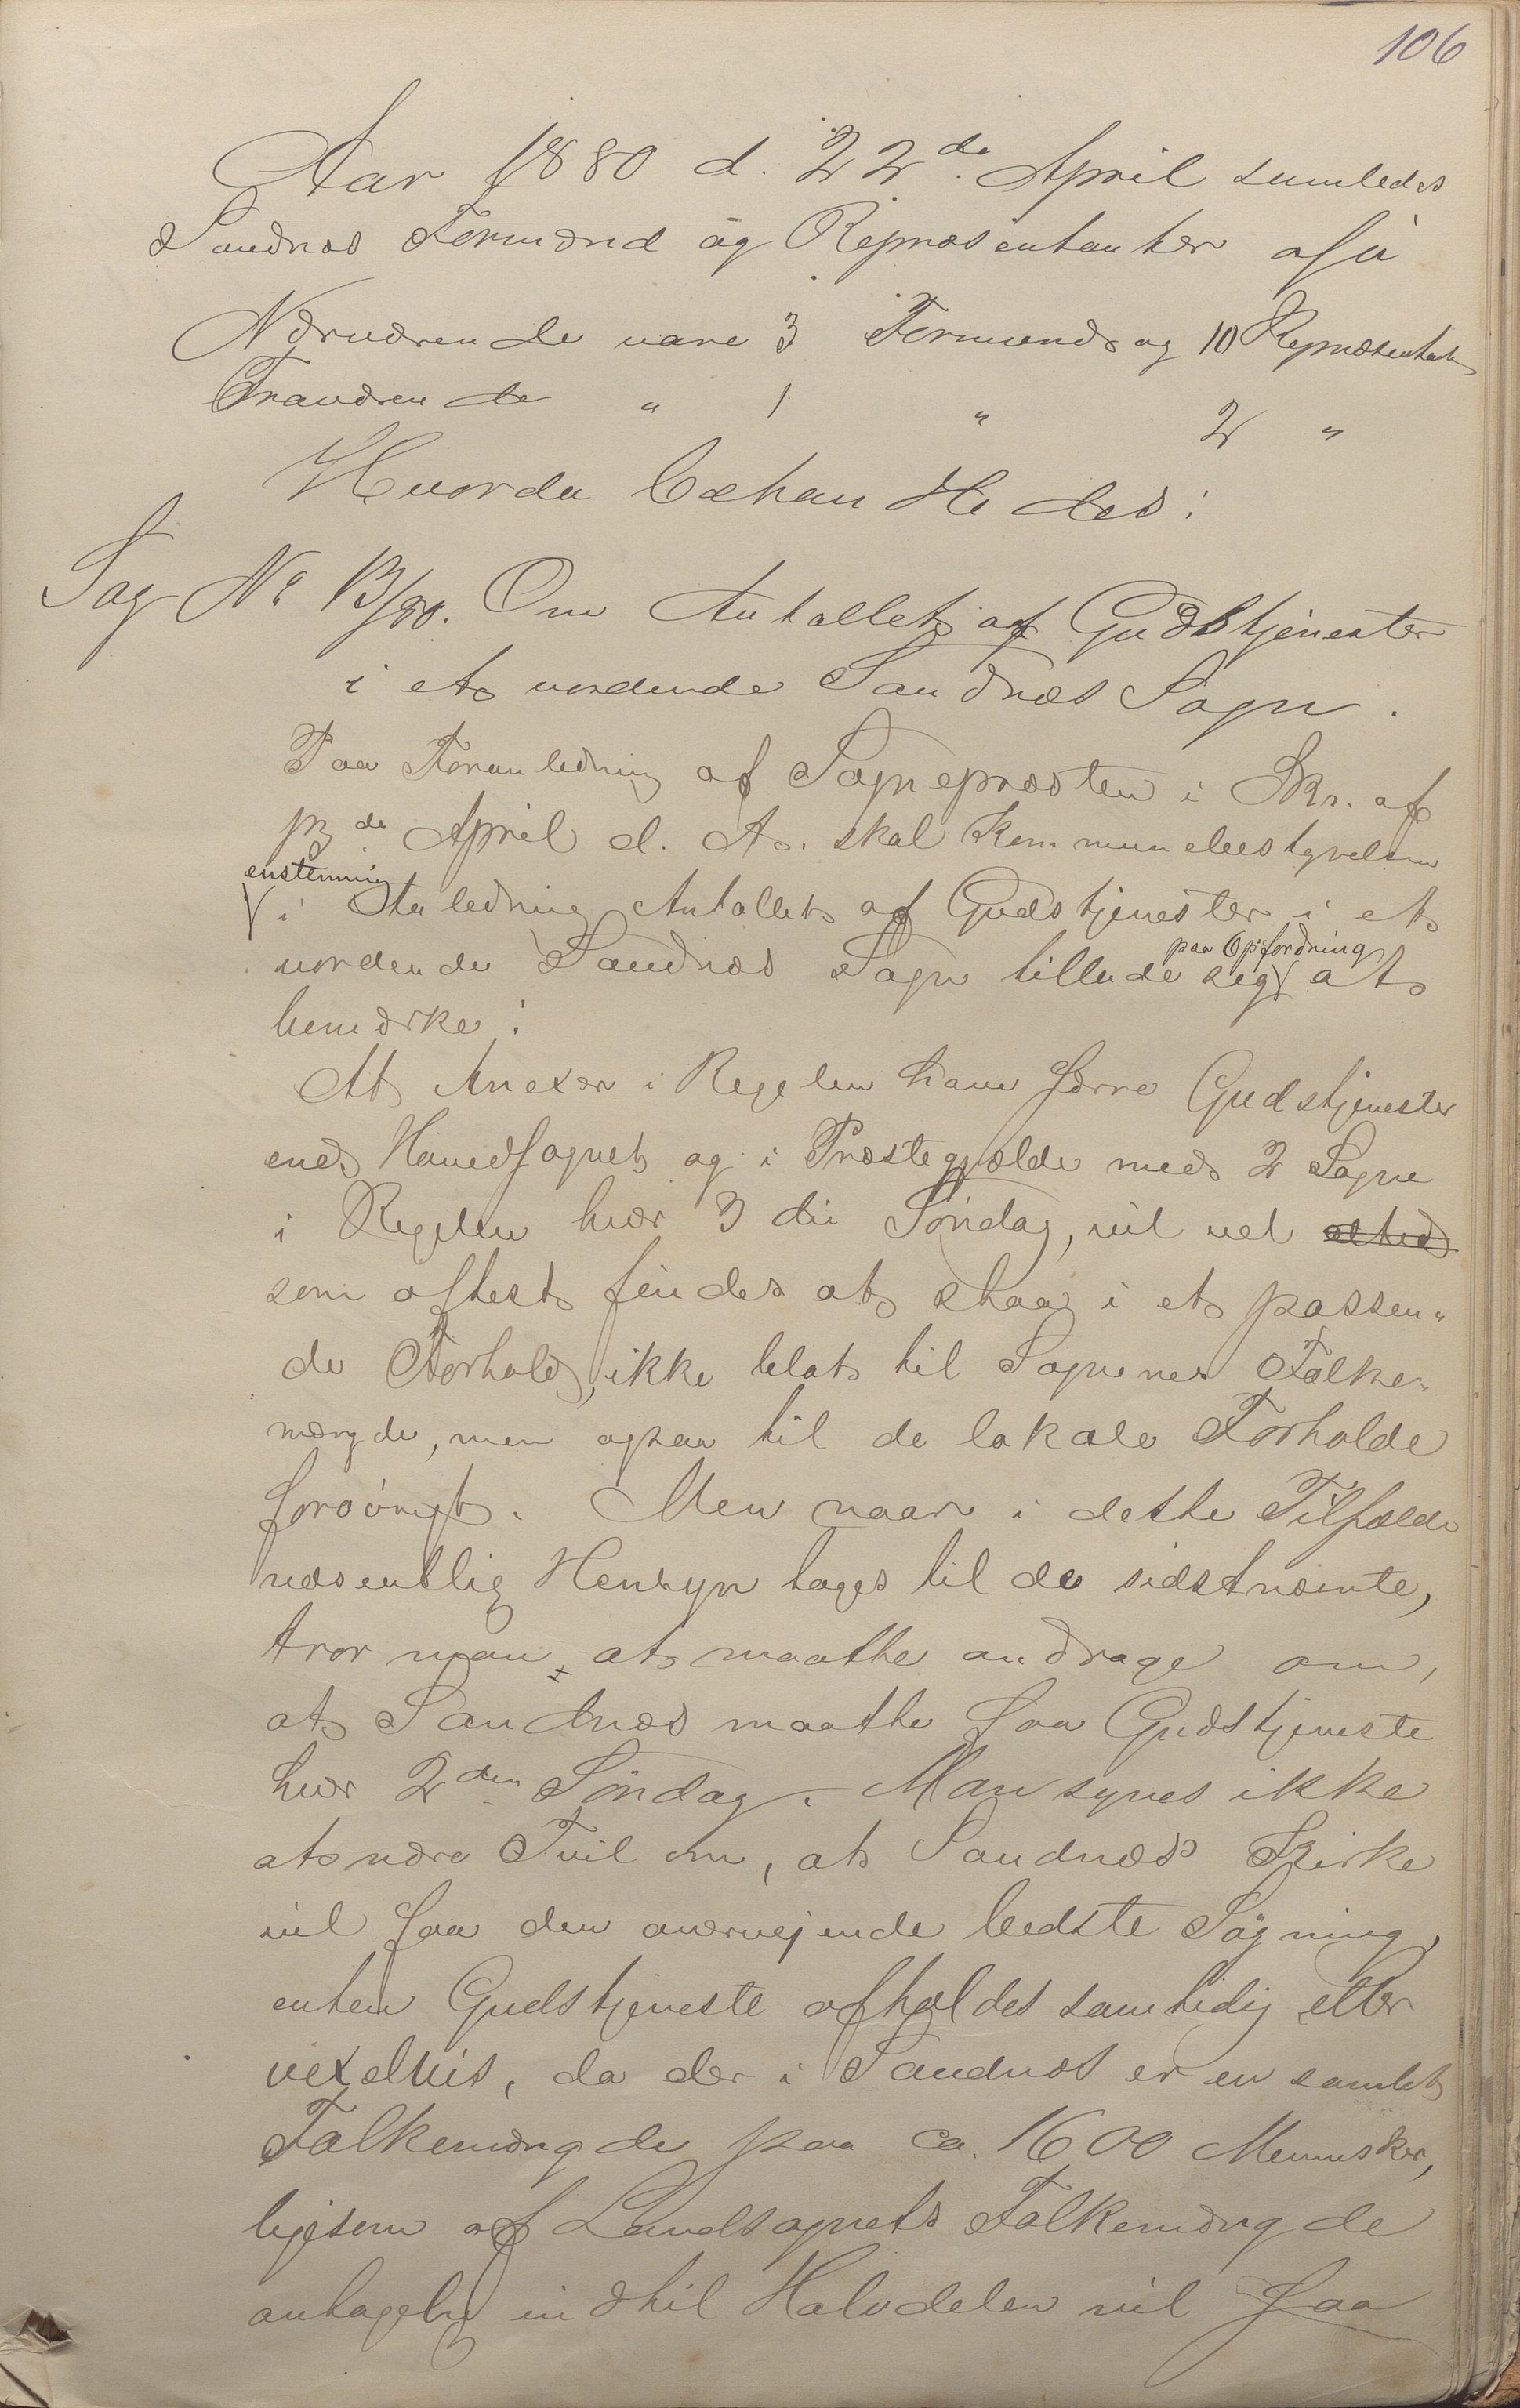 106
Aar 1880 d. 22de April samledes
Sandnæs Formænd og Repræsentanter
Nærværende vare 3 Formænd og 10 Repræsentant
Fraværende " 1 " 2 "
Hvorda behandledes:
Sag No 13/80. Om Antallet af Gudstjenester
i et vordende Sandnæs Sogn.
Paa Foranledning af Sognepræsten i Skr. af
de April d. A. skal Kommunebestyrelsen
enstemmig
i Anledning Antallet af Gudstjenester i et
paa Opfordring
vordende Sandnæs Sogn tillade sig at
bemærke:
At Anexer i Regelen have færre Gudstjenester
end Hovedsognet og i Præstegjælde med 2 Sogne
i Regelen hver 3die Søndag, vil vel altid
som oftest findes at staa i et passen-
de Forhold, ikke blot til Sognenes Folke-
mængde, men ogsaa til de lokale Forholde
forøvrigt. Men naar i dette Tilfælde
væsentlig Hensyn tages til de sidstnævnte,
tror man x at maatte andrage om,
at Sandnæs maatte faa Gudstjeneste
hver 2den Søndag. Man synes ikke
at nære Tvil om, at Sandnæs Kirke
vil faa den overvejende bedste Søgning,
enten Gudstjeneste afholdes samtidig eller
vexelvis, da der i Sandnæs er en samlet
Folkemængde paa ca. 1600 Mennesker,
ligesom af Landsognets Folkemængde
antagelig indtil Halvdelen vil faa